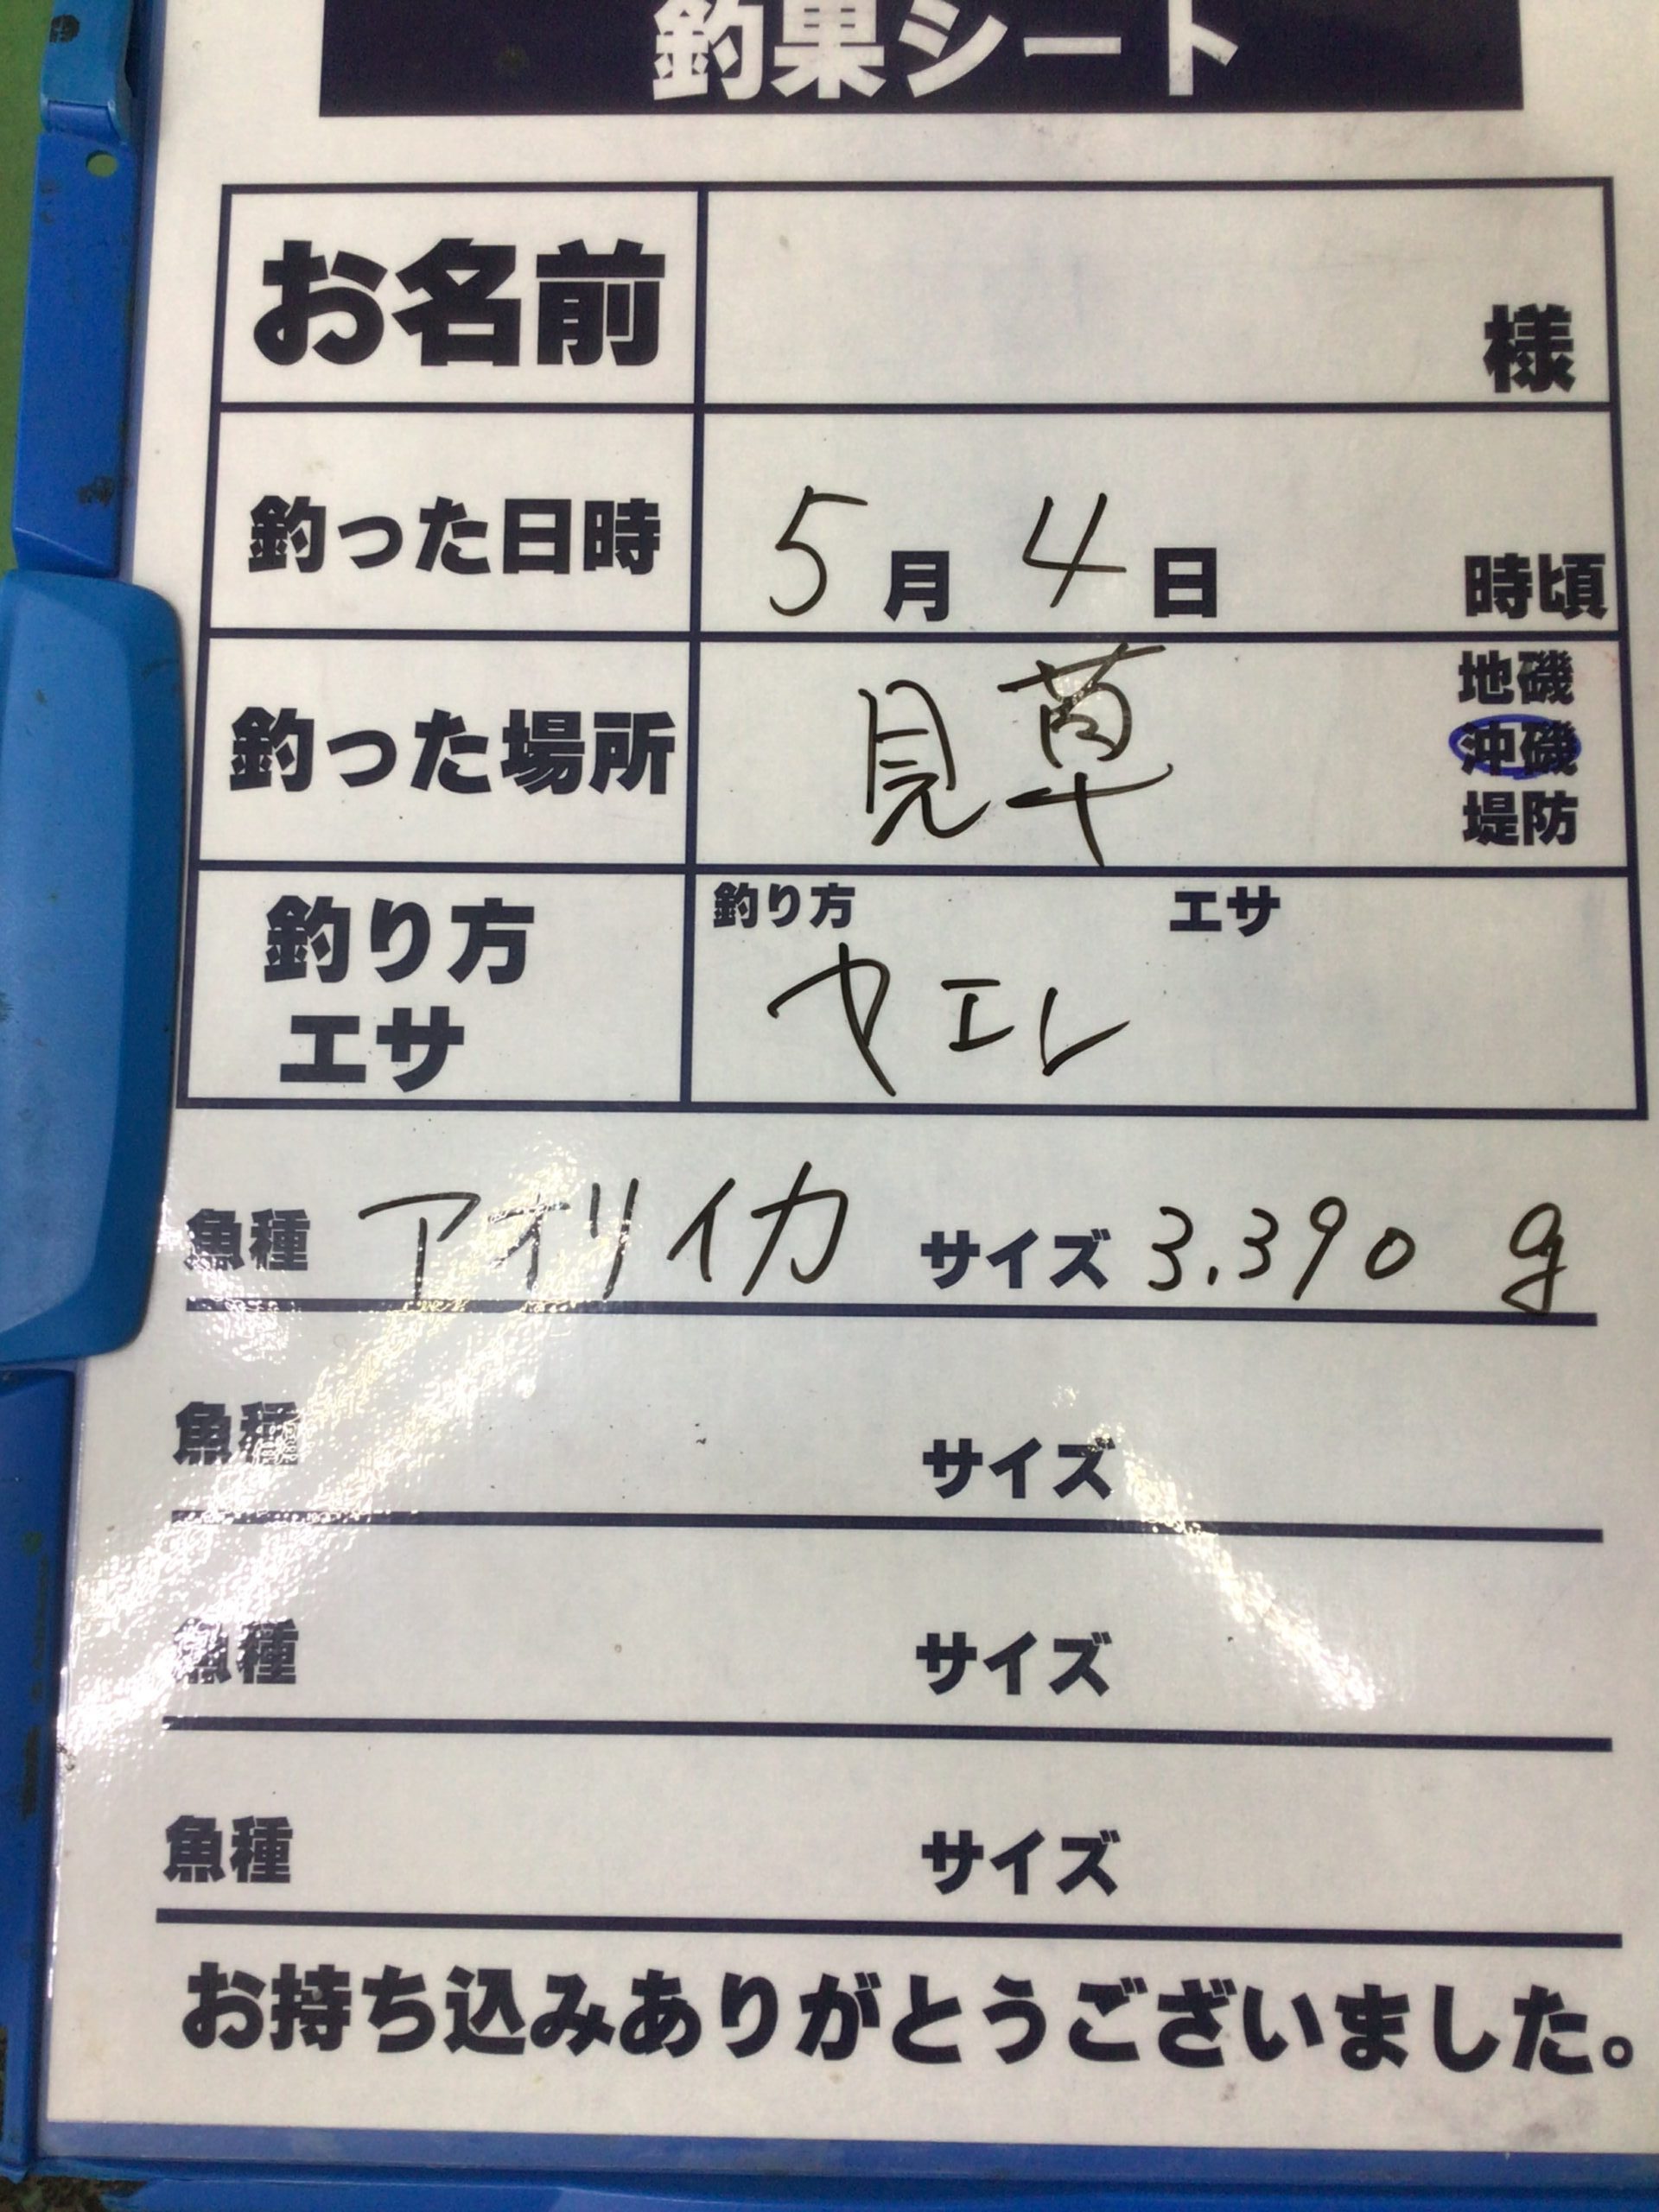 釣果シート
お名前 様
釣った日時 5月4日 時頃
釣った場所 見草 地磯
沖磯
堤防
釣り方 エサ 釣り方 エサ
ヤエン
魚種 アオリイカ サイズ 3.390 g
魚種 サイズ
魚種 サイズ
魚種 サイズ
お持ち込みありがとうございました。